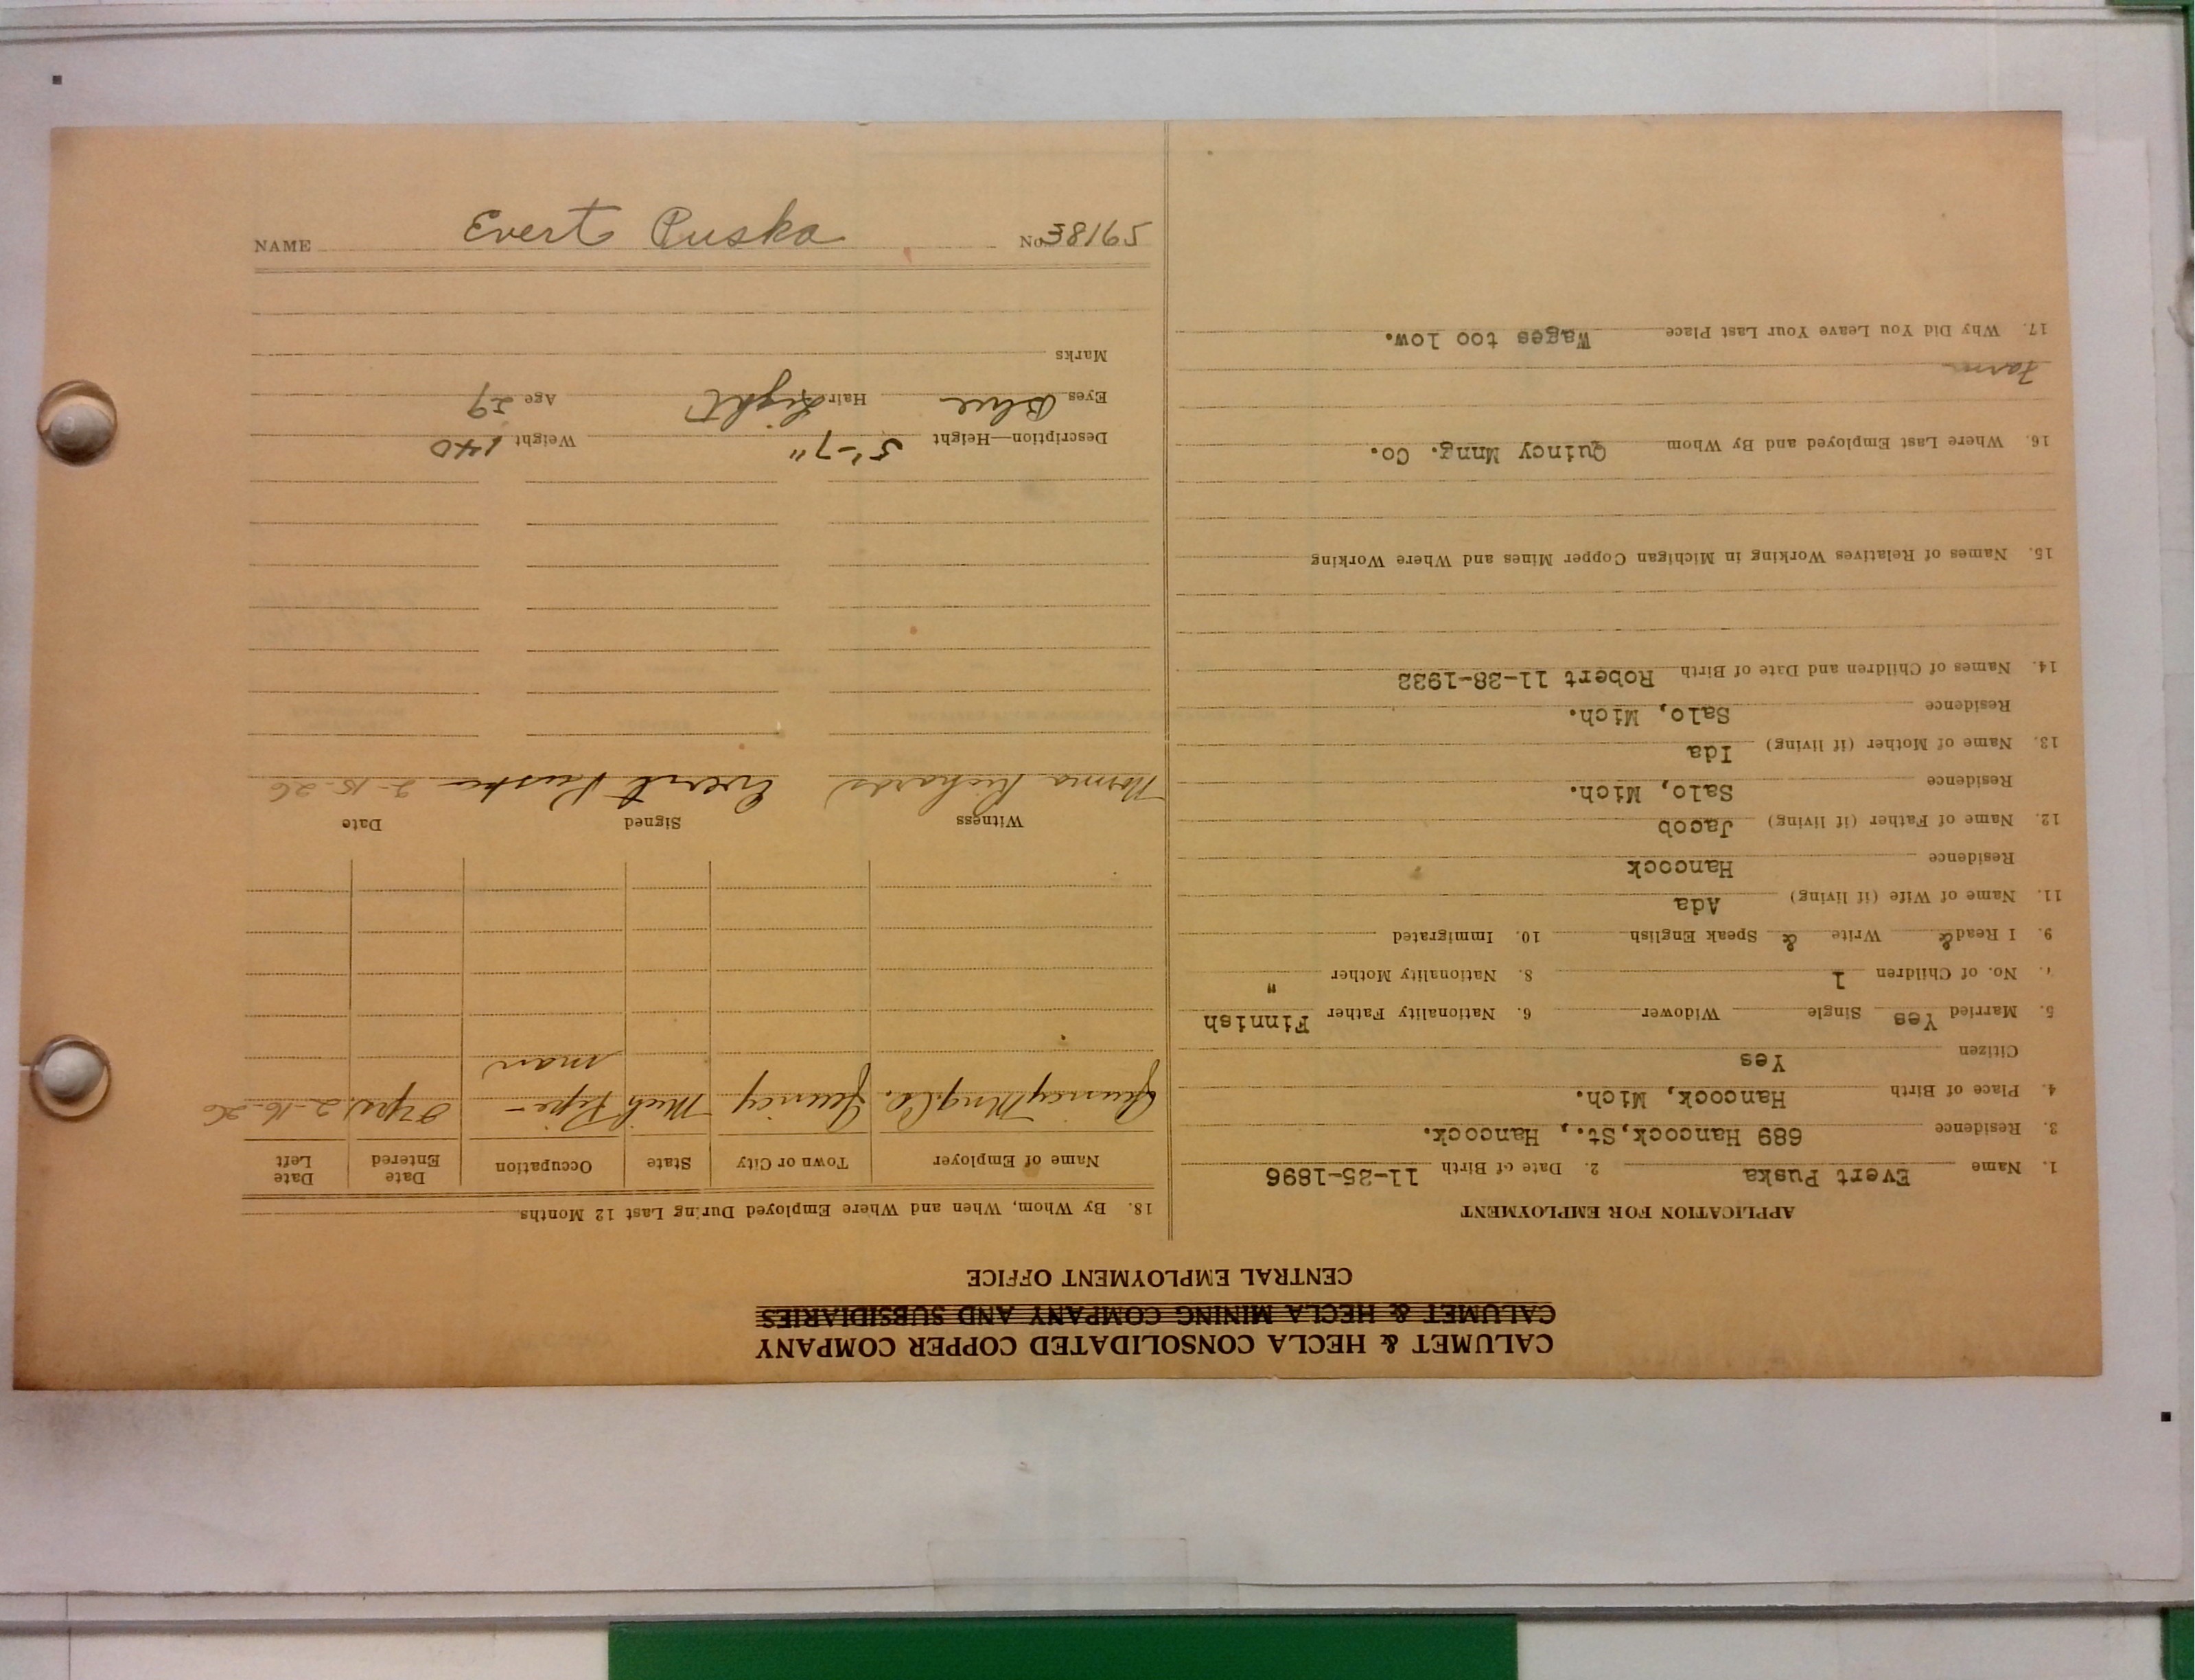 CALUMET & HECLA CONSOLIDATED COPPER COMPANY
CALUMET & HECLA MINING COMPANY AND SUBSIDIARIES
CENTRAL EMPLOYMENT OFFICE
APPLICATION FOR EMPLOYMENT
1. Name Evert Puska 2. Date of Birth 11-25-1896
3. Residence 689 Hancock,St., Hancock.
4. Place of Birth Hancock, Mich.
Citizen Yes
5. Married Yes Single Widower 6. Nationality Father Finnish
7. No. of Children 1 8. Nationality Mother "
9. I Read & Write & Speak English 10. Immigrated
11. Name of Wife (if living) Ada
Residence Hancock
12. Name of Father (if living) Jacob
Residence Salo, Mich.
13. Name of Mother (if living) Ida
Residence Salo, Mich.
14. Names of Children and Date of Birth Robert 11-28-1922
15. Names of Relatives Working in Michigan Copper Mines and Where Working
16. Where Last Employed and By Whom Quincy Mnng. Co.
Farm
17. Why Did You Leave Your Last Place Wages too low.
18. By Whom, When and Where Employed During Last 12 Months
Name of Employer Town or City State Occupation Date Entered Date Left
Quincy Mng Co. Quincy Mich Pipe- yrs. 2-16-26
man
Witness Signed Date
Norma Richards Evert Puska 2-15-26
Description—Height 5'-7" Weight 140
Eyes Blue Hair Light Age 29
Marks
NAME Evert Puska No. 38165